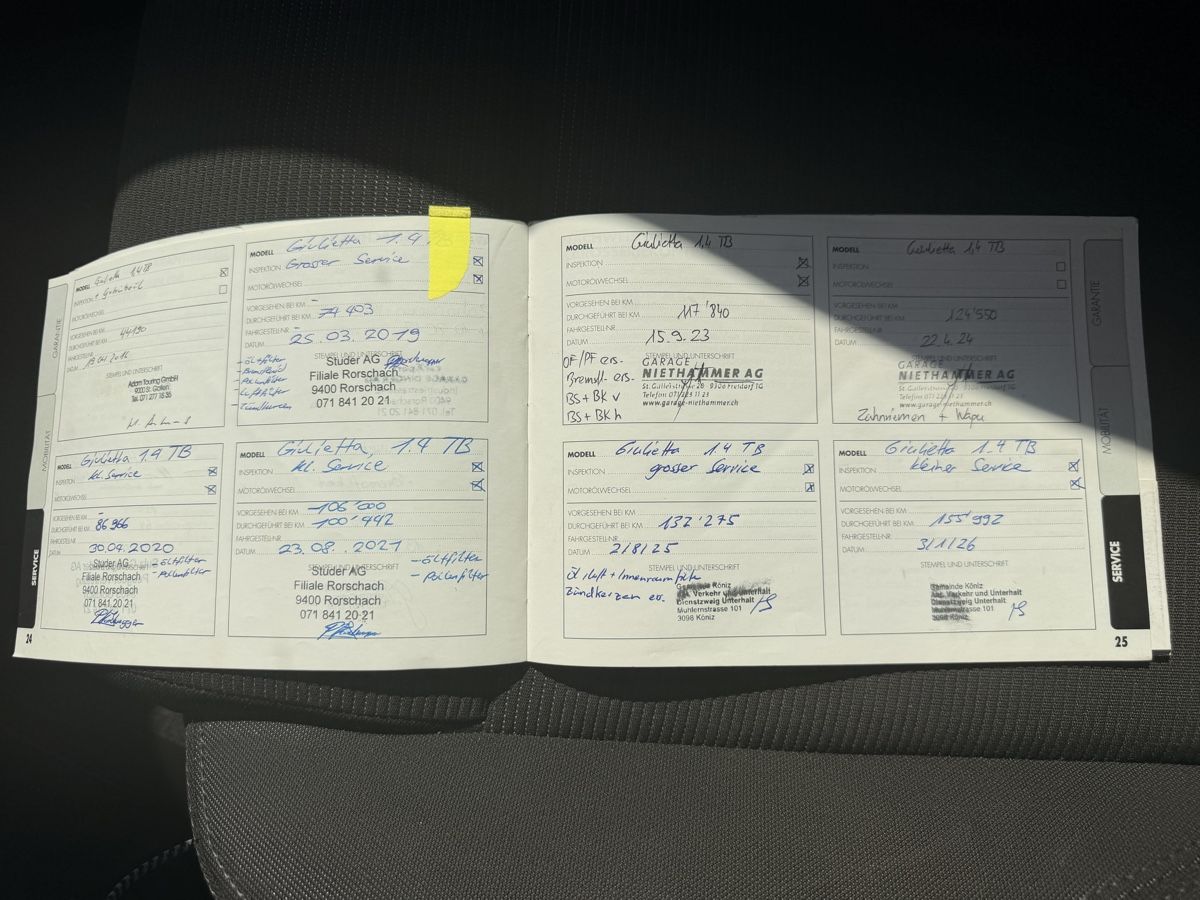 GARANTIE
MOBILITÄT
SERVICE
24
MODELL Giulietta 1.4 TB
INSPEKTION
MOTORÖLWECHSEL
VORGESEHEN BEI KM
DURCHGEFÜHRT BEI KM 44190
FAHRGESTELL-NR.
DATUM
STEMPEL UND UNTERSCHRIFT
Adam Touring GmbH
9000 St. Gallen
Tel. 071 277 16 35
MODELL Giulietta 1.4 TB
INSPEKTION Grosser Service
MOTORÖLWECHSEL
VORGESEHEN BEI KM -
DURCHGEFÜHRT BEI KM 74 403
FAHRGESTELL-NR.
DATUM 25.03.2019
STEMPEL UND UNTERSCHRIFT
- Ölfilter
- Pollenfilter
- Luftfilter
- Zündkerzen
Studer AG
Filiale Rorschach
9400 Rorschach
071 841 20 21
MODELL Giulietta 1.4 TB
INSPEKTION kl. Service
MOTORÖLWECHSEL
VORGESEHEN BEI KM -
DURCHGEFÜHRT BEI KM 86 966
FAHRGESTELL-NR.
DATUM 30.04.2020
Studer AG
Filiale Rorschach
9400 Rorschach
071 841 20 21
- Ölfilter
- Pollenfilter
MODELL Giulietta, 1.4 TB
INSPEKTION kl. Service
MOTORÖLWECHSEL
VORGESEHEN BEI KM 106'000
DURCHGEFÜHRT BEI KM 100'442
FAHRGESTELL-NR.
DATUM 23.08.2021
STEMPEL UND UNTERSCHRIFT
Studer AG
Filiale Rorschach
9400 Rorschach
071 841 20 21
- Ölfilter
- Pollenfilter
MODELL Giulietta 1,4 TB
INSPEKTION
MOTORÖLWECHSEL
VORGESEHEN BEI KM
DURCHGEFÜHRT BEI KM 117'840
FAHRGESTELL-NR.
DATUM 15.9.23
STEMPEL UND UNTERSCHRIFT
OF/PF ers.
Bremsfl. ers.
BS + BK v
BS + BK h
GARAGE
NIETHAMMER AG
St. Gallerstrasse 28 9306 Freidorf TG
Telefon 071 223 11 23
www.garage-niethammer.ch
MODELL Giulietta 1,4 TB
INSPEKTION
MOTORÖLWECHSEL
VORGESEHEN BEI KM
DURCHGEFÜHRT BEI KM 124'550
FAHRGESTELL-NR.
DATUM 22.4.24
STEMPEL UND UNTERSCHRIFT
GARAGE
NIETHAMMER AG
St. Gallerstrasse 28 9306 Freidorf TG
Telefon 071 223 11 23
www.garage-niethammer.ch
Zahnriemen + Wapu
MODELL Giulietta 1.4 TB
INSPEKTION grosser Service
MOTORÖLWECHSEL
VORGESEHEN BEI KM
DURCHGEFÜHRT BEI KM 132'275
FAHRGESTELL-NR.
DATUM 2/8/25
STEMPEL UND UNTERSCHRIFT
Öl, Luft + Innenraumfilter
Zündkerzen er.
Gemeinde Köniz
Abt. Verkehr und Unterhalt
Dienstzweig Unterhalt
Muhlernstrasse 101
3098 Köniz
MODELL Giulietta 1.4 TB
INSPEKTION kleiner Service
MOTORÖLWECHSEL
VORGESEHEN BEI KM
DURCHGEFÜHRT BEI KM 155'992
FAHRGESTELL-NR.
DATUM 3/1/26
STEMPEL UND UNTERSCHRIFT
Gemeinde Köniz
Abt. Verkehr und Unterhalt
Dienstzweig Unterhalt
Muhlernstrasse 101
3098 Köniz
GARANTIE
MOBILITÄT
SERVICE
25